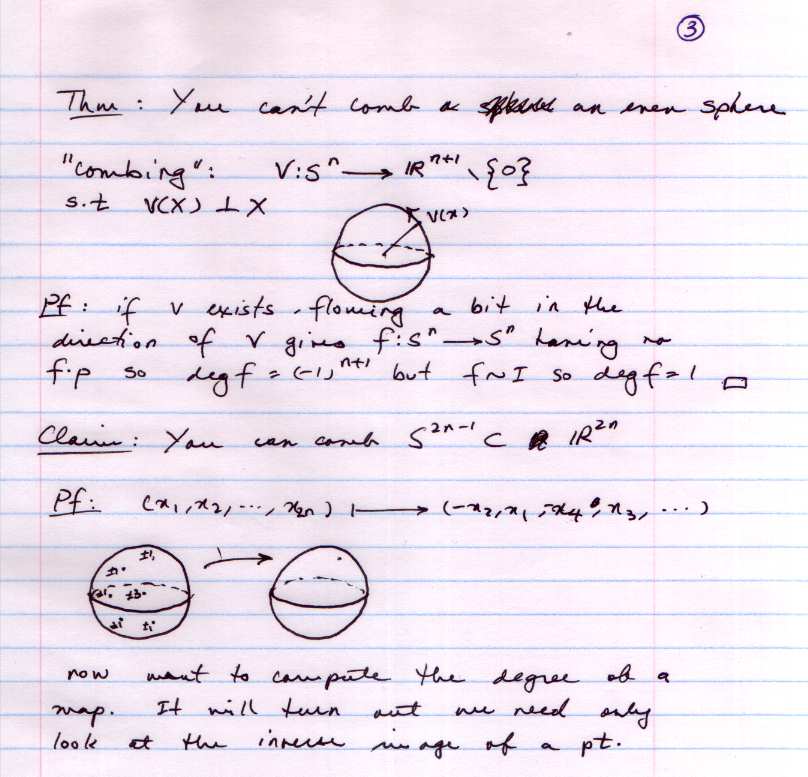 3
Thm : You can't comb a an even sphere
"combing": V:Sⁿ ⟶ ℝⁿ⁺¹ \ {0}
s.t V(X) ⊥ X
V(x)
Pf : if v exists, flowing a bit in the
direction of V gives f:Sⁿ ⟶ Sⁿ having no
f.p so deg f = (-1)ⁿ⁺¹ but f ~ I so deg f = 1 □
Claim : You can comb S²ⁿ⁻¹ ⊂ ℝ²ⁿ
Pf: (x₁, x₂, ..., x₂ₙ) ⟼ (-x₂, x₁, -x₄, x₃, ...)
±1 ±1
±1 ±3
±1 ±1
now want to compute the degree of a
map. It will turn out we need only
look at the inverse image of a pt.